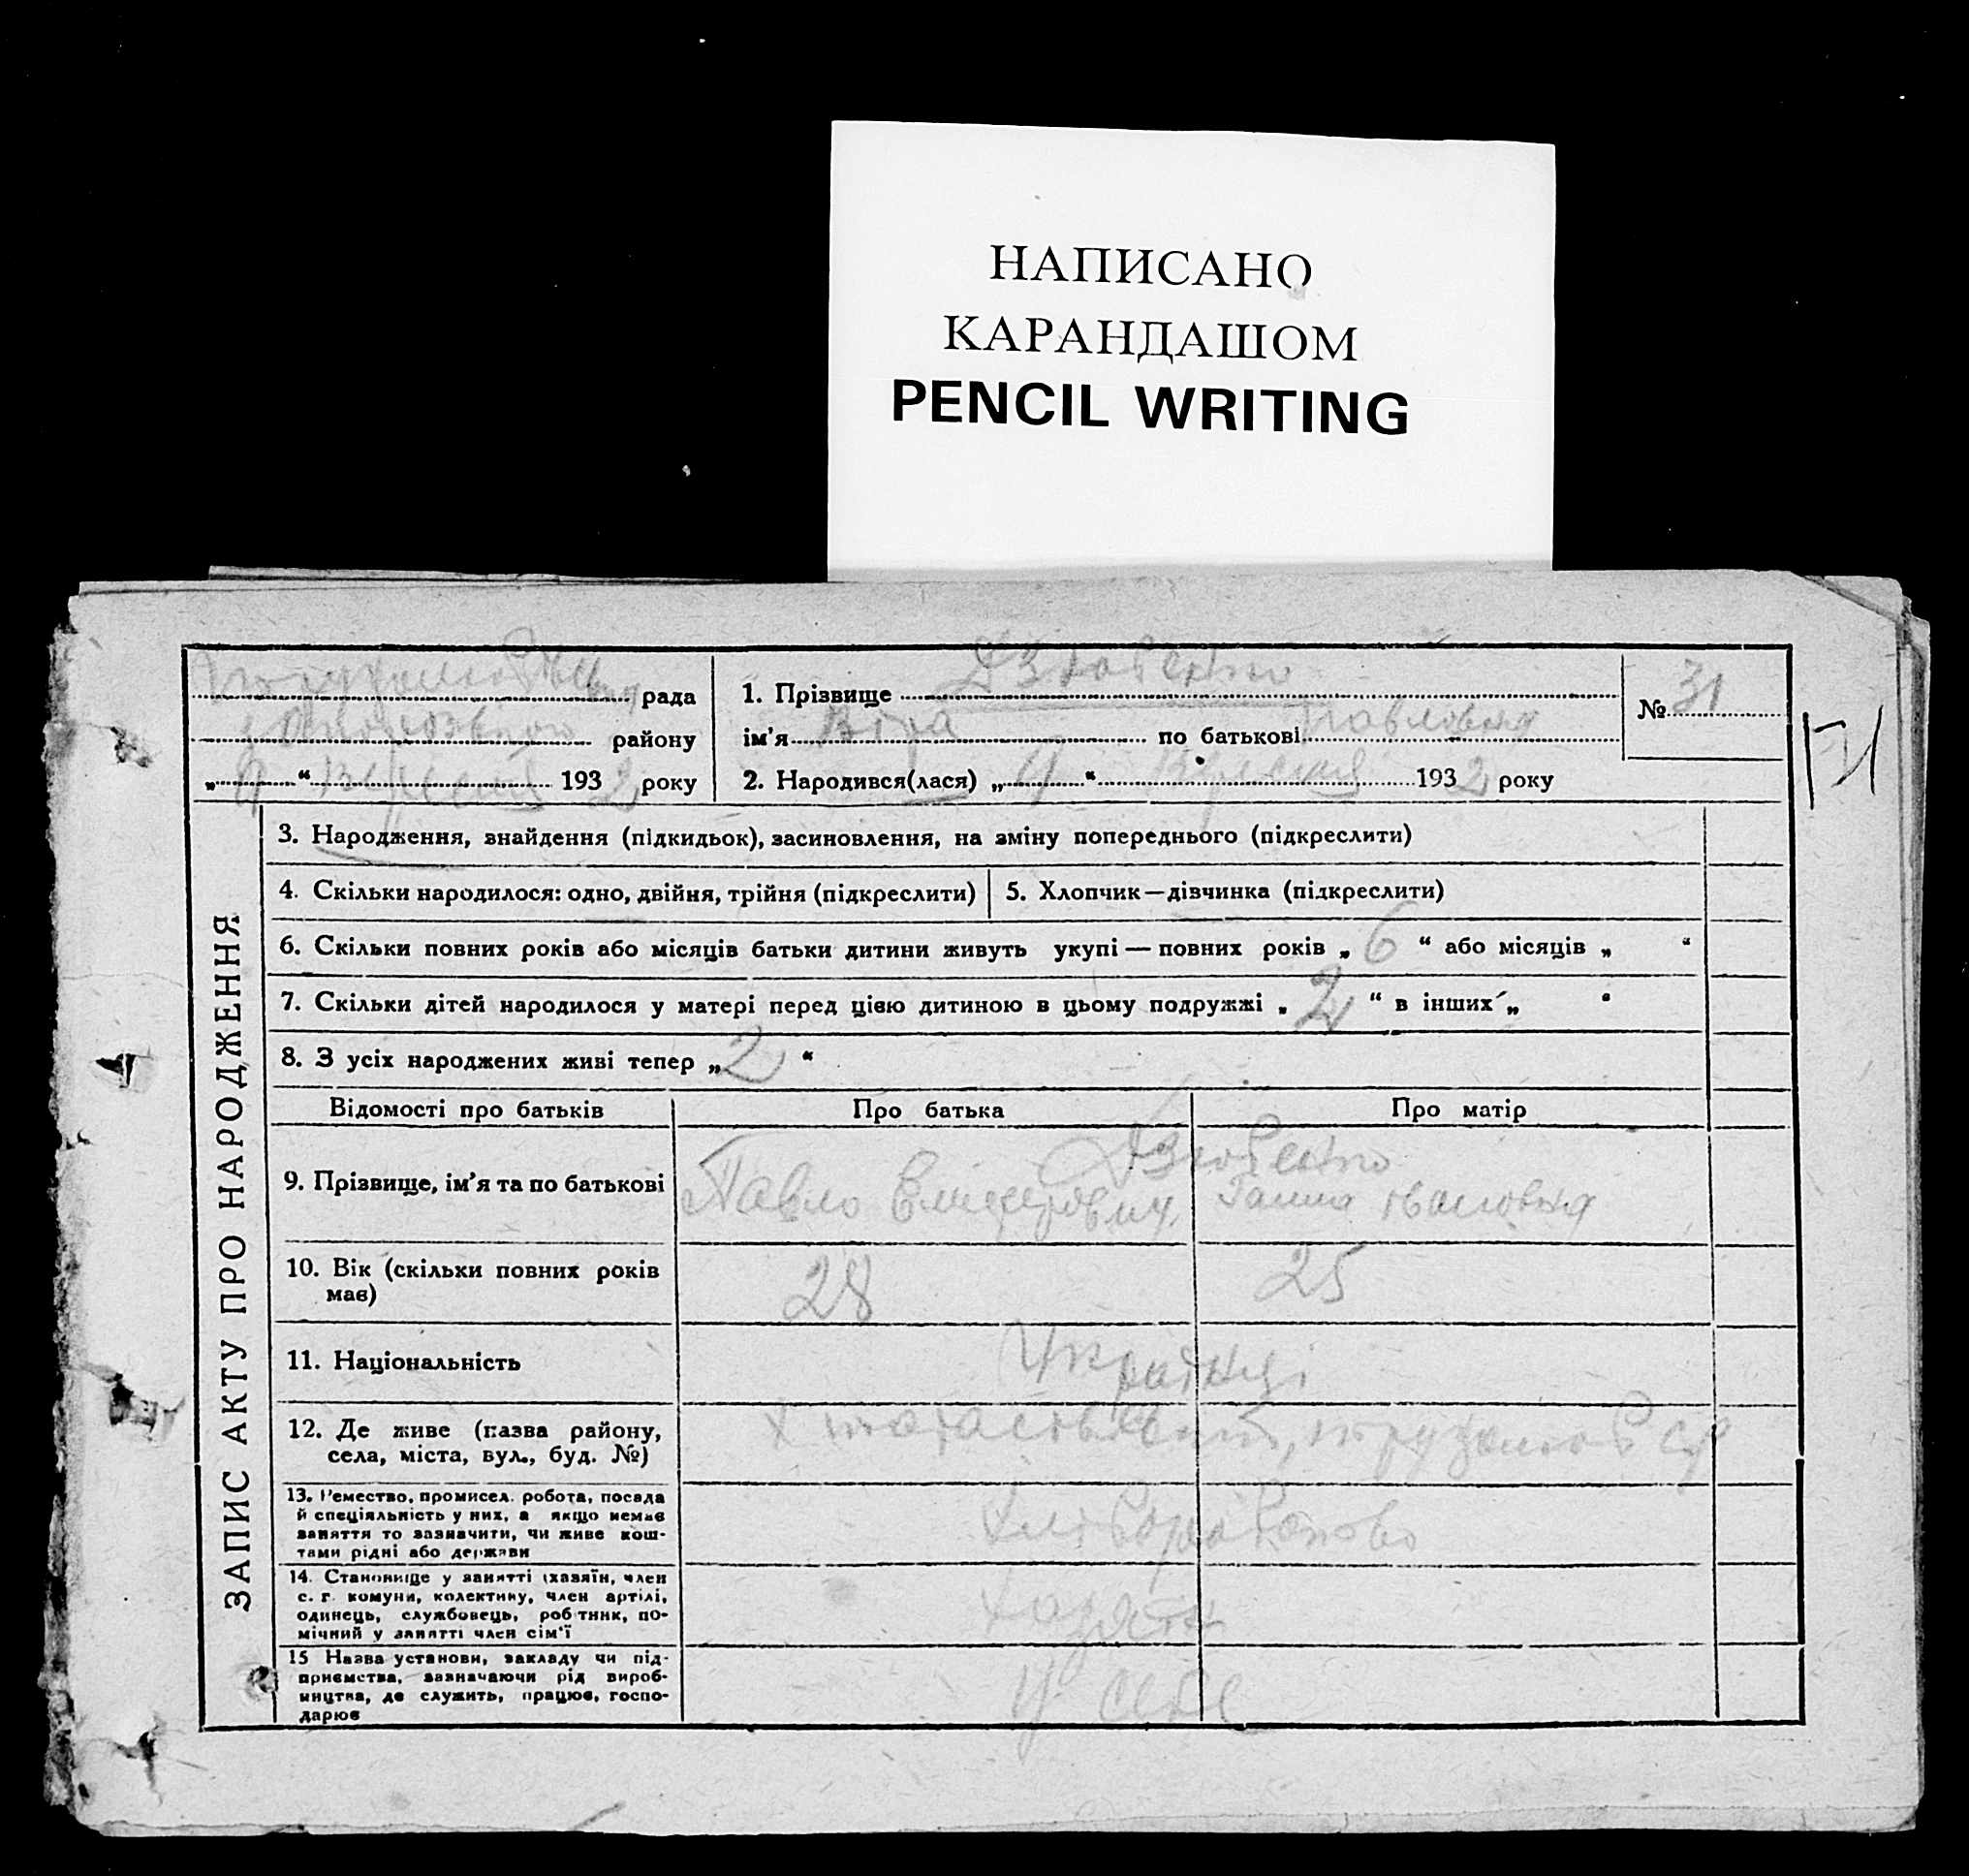 НАПИСАНО
КАРАНДАШОМ
PENCIL WRITING
рада
району
„ 9 “ Вересня 1932 року
1. Прізвище Дзюбенко
ім'я Віра по батькові Павловна
2. Народився(лася) „ “ Вересня 1932 року
№ 31
ЗАПИС АКТУ ПРО НАРОДЖЕННЯ
3. Народження, знайдення (підкидьок), засиновлення, на зміну попереднього (підкреслити)
4. Скільки народилося: одно, двійня, трійня (підкреслити)
5. Хлопчик—дівчинка (підкреслити)
6. Скільки повних років або місяців батьки дитини живуть укупі — повних років „ 6 “ або місяців „ “
7. Скільки дітей народилося у матері перед цією дитиною в цьому подружжі „ 2 “ в інших „ “
8. З усіх народжених живі тепер „ 2 “
Відомості про батьків
Про батька
Про матір
9. Прізвище, ім'я та по батькові
Дзюбенко
Павло
Ганна Івановна
10. Вік (скільки повних років
має)
28
25
11. Національність
Українці
12. Де живе (назва району,
села, міста, вул., буд. №)
13. Ремество, промисел, робота, посада
й спеціяльність у них, а якщо немає
заняття то зазначити, чи живе кош-
тами рідні або держави
Хліборобство
14. Становище у занятті (хазяїн, член
с. г. комуни, колективу, член артілі,
одинець, службовець, робітник, по-
мічний у занятті член сім'ї
15 Назва установи, закладу чи під-
приємства, зазначаючи рід вироб-
ництва, де служить, працює, госпо-
дарює
У себе